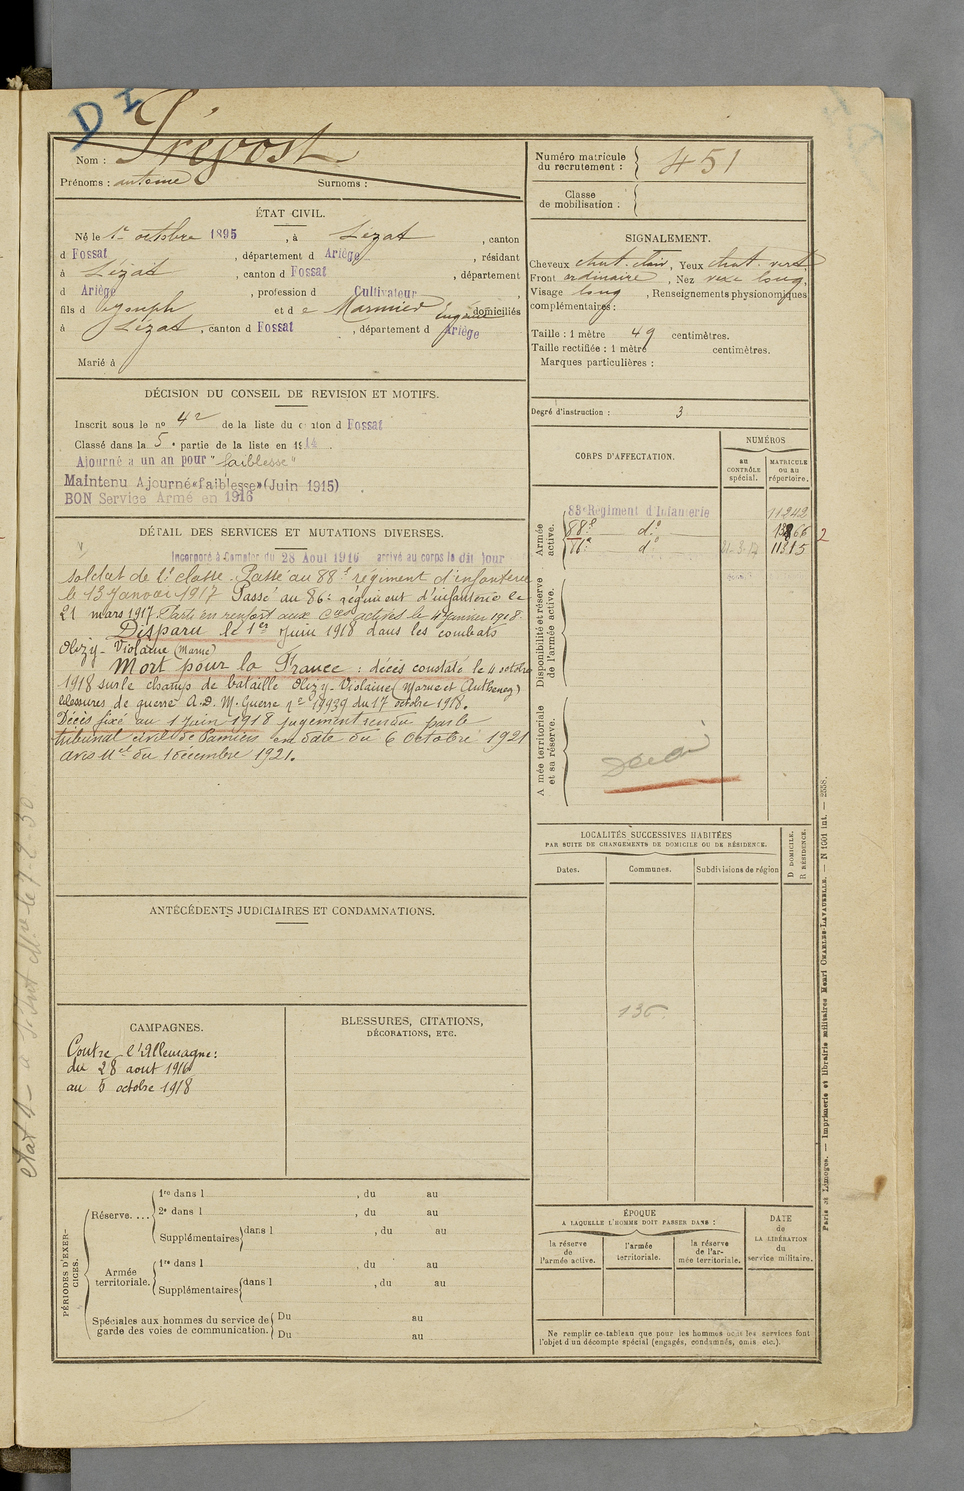 D I
Prévost
Nom :
Prénoms : antoine Surnoms :
Numéro matricule
du recrutement : 451
Classe
de mobilisation :
ÉTAT CIVIL.
Né le 1er octobre 1895, à Lézat, canton
d Fossat, département d Ariège, résidant
à Lézat, canton d Fossat, département
d Ariège, profession d Cultivateur,
fils d Joseph et d e Marmier Eugénie, domiciliés
à Lézat, canton d Fossat, département d Ariège
Marié à
SIGNALEMENT.
Cheveux chat. clair, Yeux chat. verd.
Front ordinaire, Nez vexe long,
Visage long, Renseignements physionomiques
complémentaires :
Taille : 1 mètre 49 centimètres.
Taille rectifiée : 1 mètre centimètres.
Marques particulières :
Degré d'instruction : 3
DÉCISION DU CONSEIL DE REVISION ET MOTIFS.
Inscrit sous le no 42 de la liste du canton d Fossat
Classé dans la 5e partie de la liste en 1914.
Ajourné a un an pour "faiblesse"
Maintenu Ajourné «faiblesse» (Juin 1915)
BON Service Armé en 1916
CORPS D'AFFECTATION.
NUMÉROS
au
CONTRÔLE
spécial.
MATRICULE
ou au
répertoire.
Armée
active.
83e Régiment d'Infanterie 11242
88e do
do 11315
2
Disponibilité et réserve
de l'armée active.
Armée territoriale
et sa réserve.
DÉTAIL DES SERVICES ET MUTATIONS DIVERSES.
Incorporé à Compter du 28 Aout 1916 arrivé au corps le dit jour
soldat de 2e classe. Passé au 88e régiment d'infanterie
le 13 Janvier 1917 Passé au 86e régiment d'infanterie le
21 mars 1917. Parti en renfort aux Cies actives le 4 Janvier 1918.
Disparu le 1er Juin 1918 dans les combats
Olizy-Violaine (Marne)
Mort pour la France : décès constaté le 4 octobre
1918 sur le champ de bataille Olizy-Violaine (Marne et Anthenay)
blessures de guerre A.D. M. Guerre no 19939 du 17 octobre 1918.
Décès fixé au 1 Juin 1918 jugement rendu par le
tribunal civil de Pamiers en date du 6 Octobre 1921
avis Mel du 1 décembre 1921.
LOCALITÉS SUCCESSIVES HABITÉES
PAR SUITE DE CHANGEMENTS DE DOMICILE OU DE RÉSIDENCE.
D DOMICILE.
R RÉSIDENCE.
Dates.
Communes.
Subdivisions de région
136
ANTÉCÉDENTS JUDICIAIRES ET CONDAMNATIONS.
CAMPAGNES.
Contre l'Allemagne :
du 28 aout 1916
au 5 octobre 1918
BLESSURES, CITATIONS,
DÉCORATIONS, ETC.
PÉRIODES D'EXER-
CICES.
Réserve....
1re dans l , du au
2e dans l , du au
Supplémentaires dans l , du au
Armée
territoriale.
1re dans l , du au
Supplémentaires dans l , du au
Spéciales aux hommes du service de
garde des voies de communication.
Du au
Du au
ÉPOQUE
A LAQUELLE L'HOMME DOIT PASSER DANS :
la réserve
de
l'armée active.
l'armée
territoriale.
la réserve
de l'ar-
mée territoriale.
DATE
de
LA LIBÉRATION
du
service militaire.
Ne remplir ce tableau que pour les hommes dont les services font
l'objet d'un décompte spécial (engagés, condamnés, omis etc.).
Paris et Limoges. — Imprimerie et librairie militaires Henri CHARLES-LAVAUZELLE. — N 1601 int. — 2558.